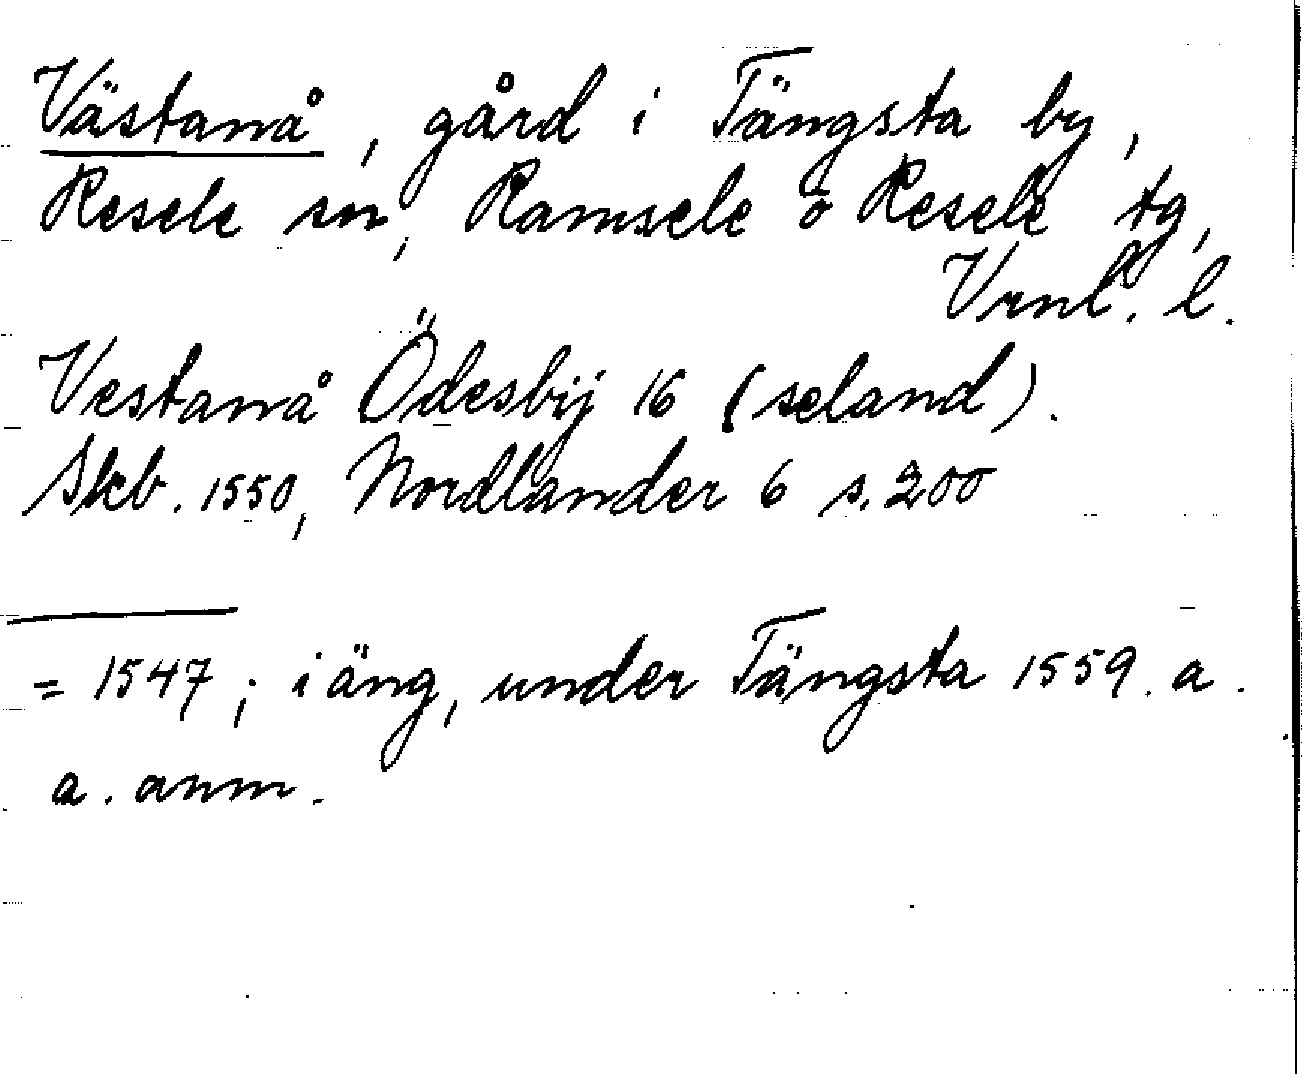 Västanå, gård i Tängsta by,
Resele sn, Ramsele o Resele tg,
Vrnl. l.
Vestanå Ödesbij 16 (seland).
Skb. 1550, Nordlander 6 s. 200
= 1547; i äng, under Tängsta 1559. a.
a. anm.